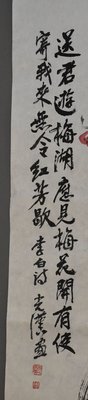 送君遊梅湖應見梅花開有使
寄我來無令紅芳歇 李白詩 光漢画